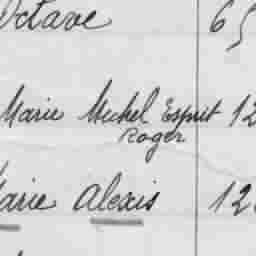 Octave 65
Marie Michel Esprit 12
Roger
Marie Alexis 12